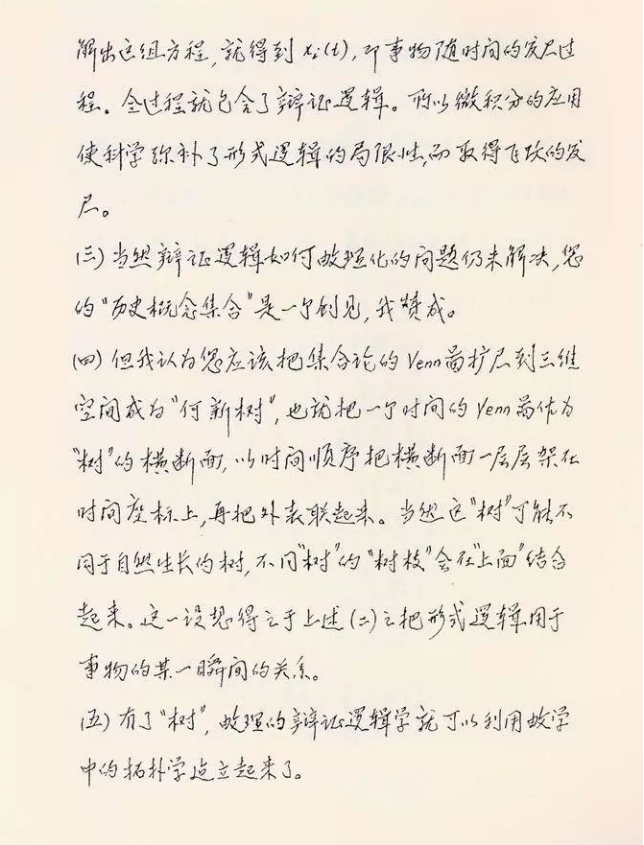 解出这组方程,就得到 xᵢ(t),即事物随时间的发展过
程。全过程就包含了辩证逻辑。所以微积分的应用
使科学弥补了形式逻辑的局限性,而取得飞跃的发
展。
(三)当然辩证逻辑如何数理化的问题仍未解决,您
的“历史概念集合”是一个创见,我赞成。
(四)但我认为您应该把集合论的Venn图扩展到三维
空间成为“何新树”,也就把一个时间的Venn图作为
“树”的横断面,以时间顺序把横断面一层层架在
时间座标上,再把外表联起来。当然这“树”可能不
同于自然生长的树,不同“树”的“树枝”会在“上面”结合
起来。这一设想得之于上述(二)之把形式逻辑用于
事物的某一瞬间的关系。
(五)有了“树”,数理的辩证逻辑学就可以利用数学
中的拓扑学建立起来了。